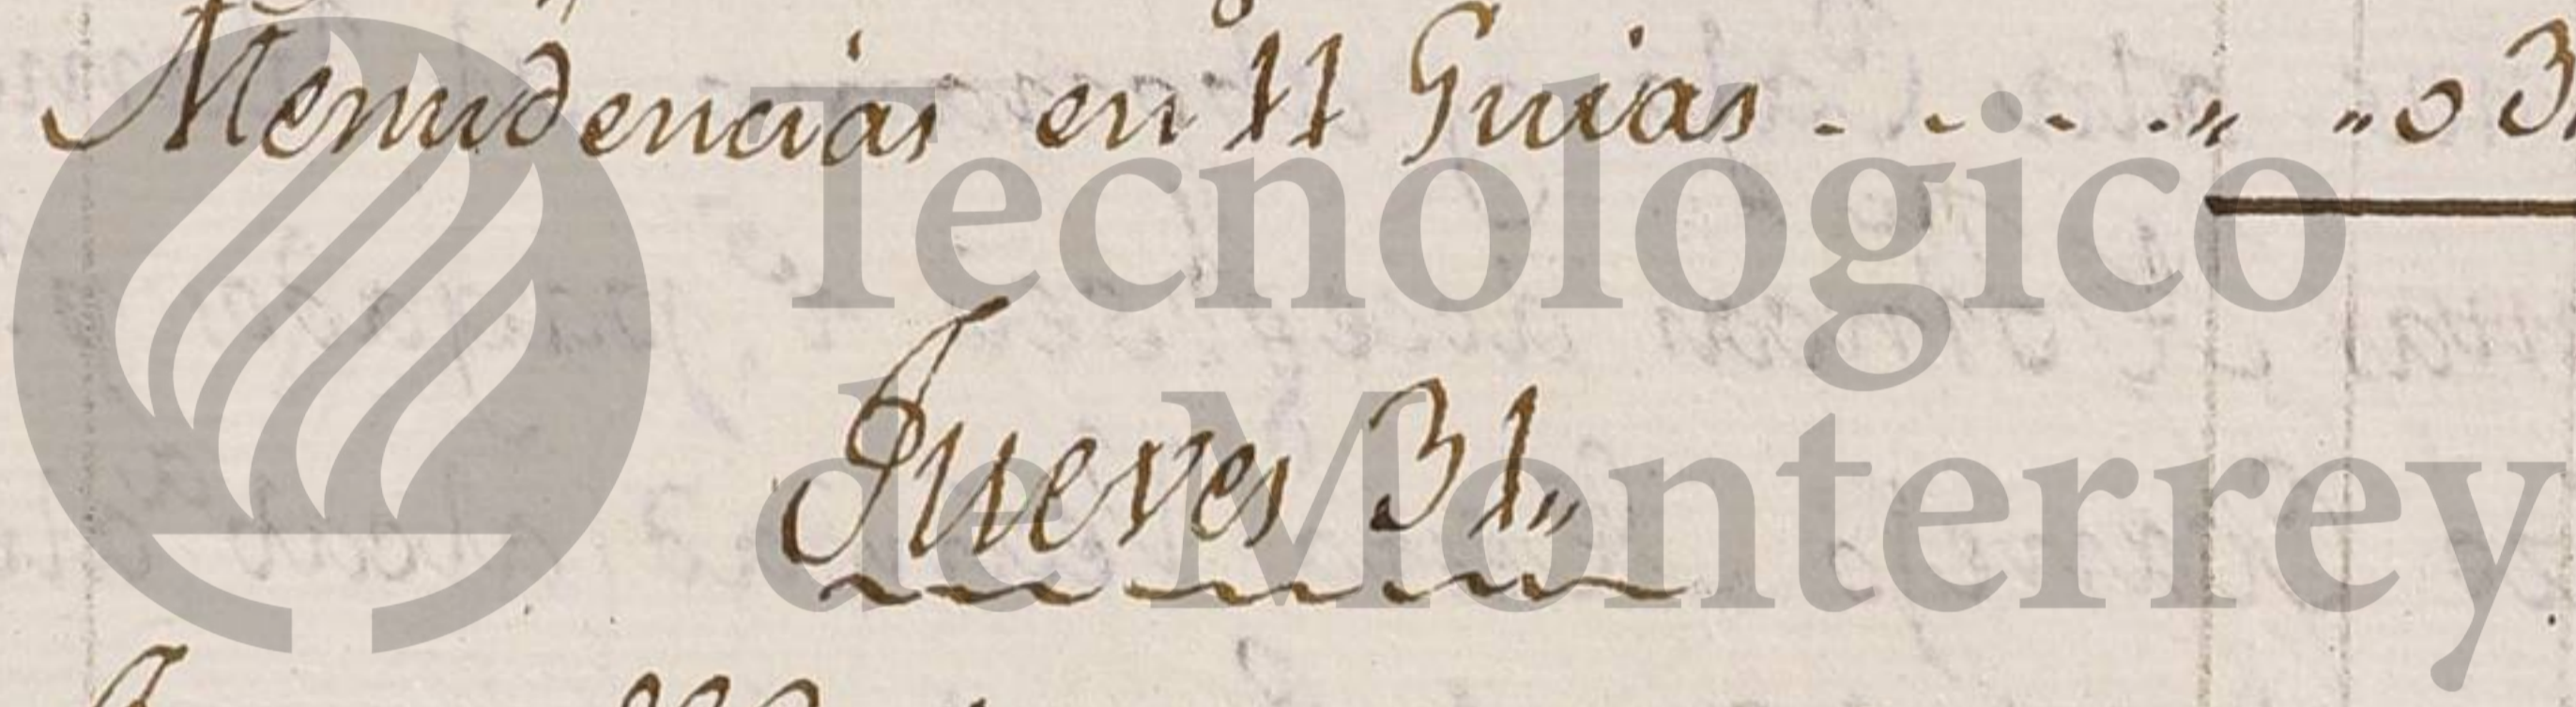 Menudencias en 11 Guias . . . . „ „ 03
Jueves 31„
Tecnológico
de Monterrey